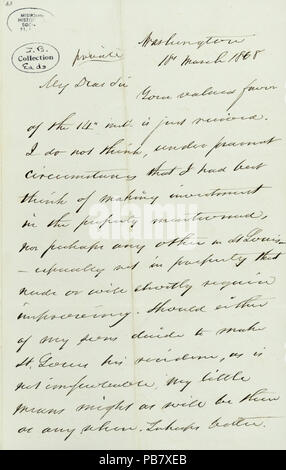 MISSOURI
HISTORICAL
SOC.
J. B.
Collection
Eads
private
Washington
18th March 1868
My Dear Sir
Your valued favor
of the 14th inst. is just received.
I do not think, under present
circumstances that I had best
think of making investment
in the property mentioned,
nor perhaps any other in St Louis
— especially not in property that
needs or will shortly require
improvement. Should either
of my sons decide to make
St. Louis his residence, as is
not improbable my little
means might as well be there
as any where. Perhaps better.
alamy
Image ID: PB7XEB
www.alamy.com